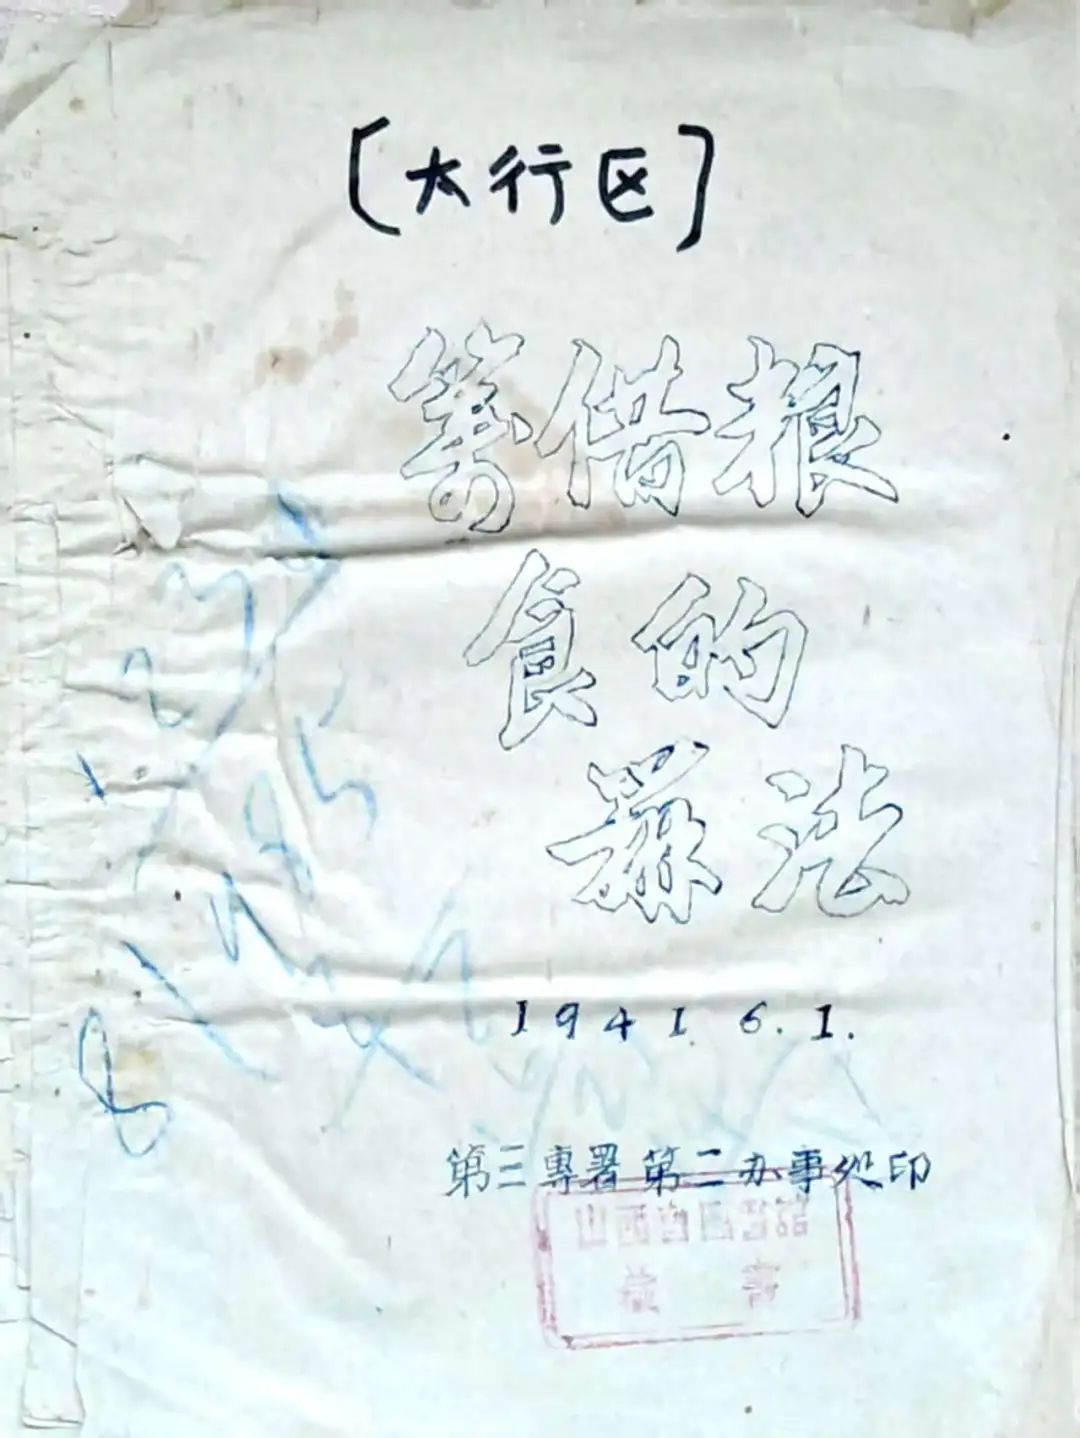 〔太行区〕
筹借粮
食的
办法
1941.6.1.
第三專署第二办事処印
山西省图書館
書藏